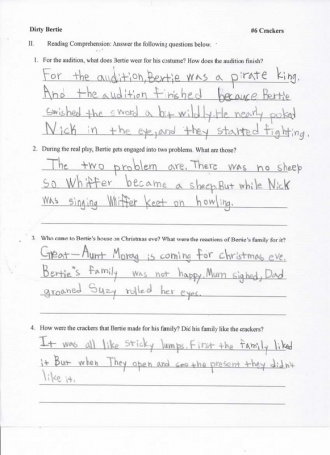 Dirty Bertie #6 Crackers
II. Reading Comprehension: Answer the following questions below.
1. For the audition, what does Bertie wear for his costume? How does the audition finish?
For the audition, Bertie was a pirate king.
And the audition finished because Bertie
swished the sword a bit wildly. He nearly poked
Nick in the eye, and they started fighting.
2. During the real play, Bertie gets engaged into two problems. What are those?
The two problem are. There was no sheep
so Whiffer became a sheep. But while Nick
was singing Whiffer keet on howling.
3. Who came to Bertie's house on Christmas eve? What were the reactions of Bertie's family for it?
Great-Aunt Morag is coming for christmas eve.
Bertie's family was not happy. Mum sighed, Dad
groaned Suzy rulled her eyes.
4. How were the crackers that Bertie made for his family? Did his family like the crackers?
It was all like sticky lumps. First the family liked
it But when They open and see the present they didn't
like it.